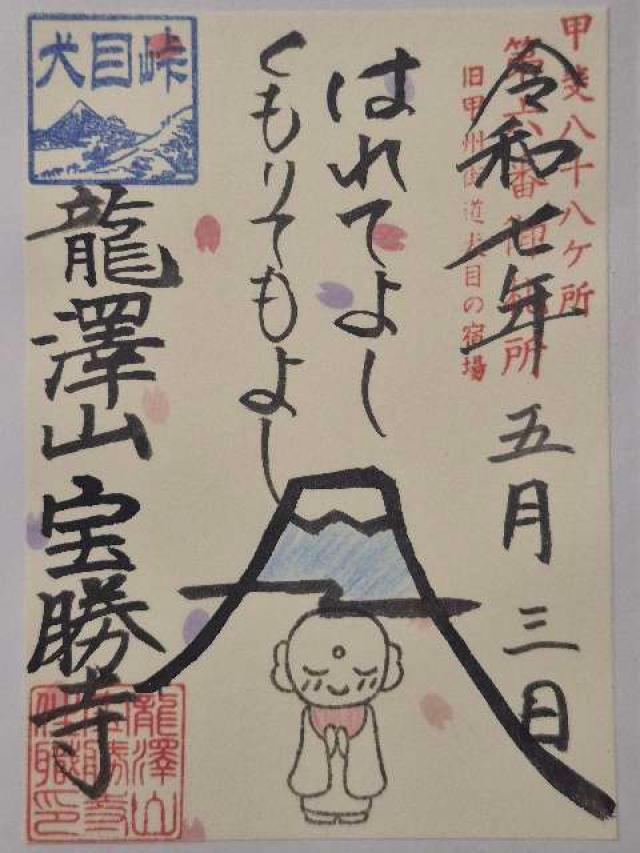 甲斐八十八ケ所
第六番御札所
旧甲州街道犬目の宿場
令和七年 五月 三日
はれてよし
くもりてもよし
犬目峠
龍澤山 宝勝寺
龍澤山
宝勝寺
住職印